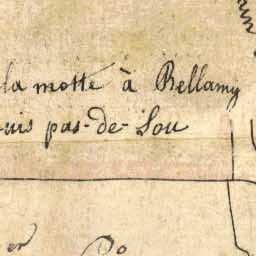 la motte à Bellamy
uis pas-de-Lou
er